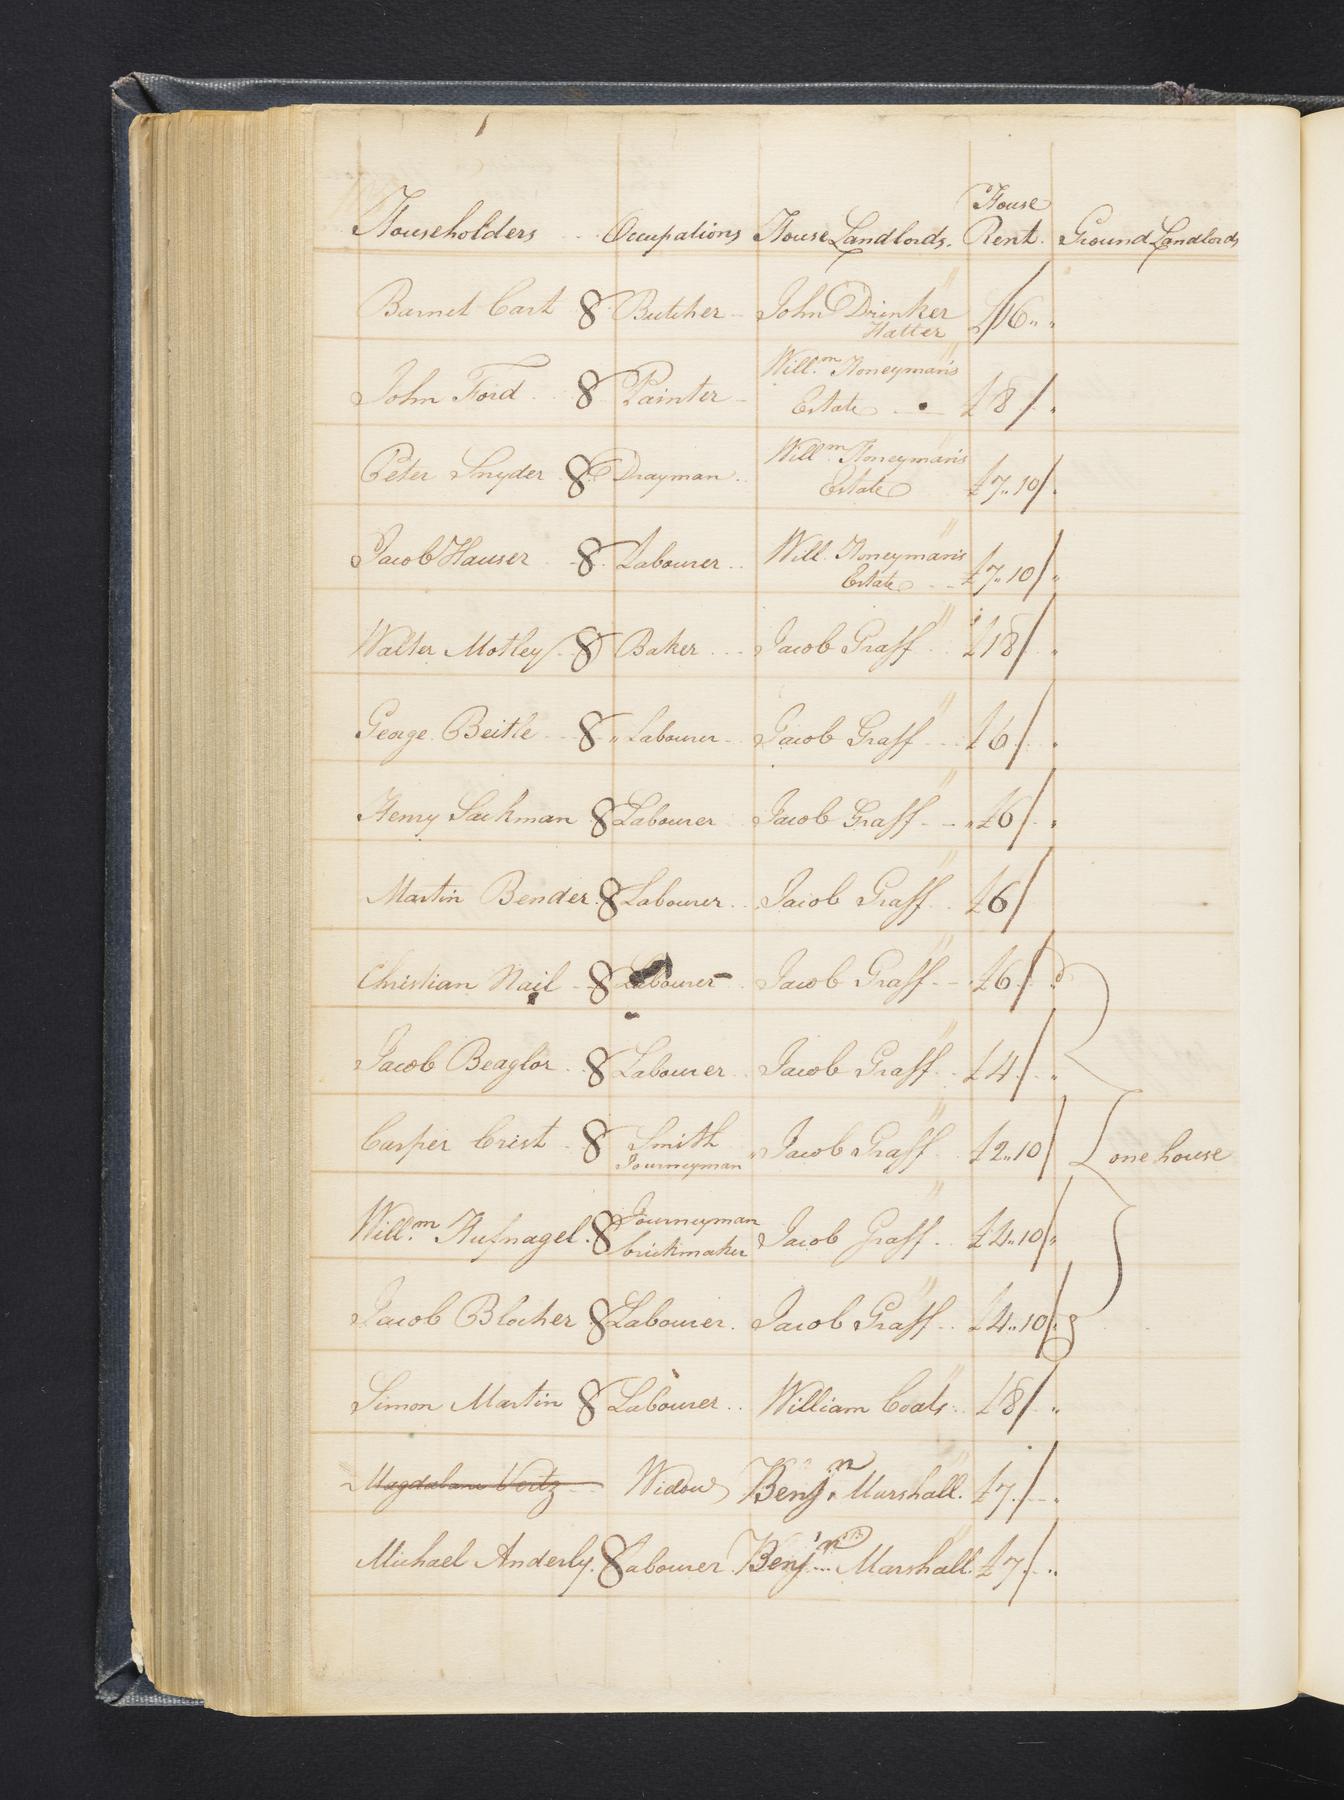 House
Householders Occupations House Landlords. Rent. Ground Landlords
Barnet Cart 8 Butcher John Drinker £16
Hatter
John Ford 8 Painter Will.m Honeyman's
Estate £8
Peter Snyder 8 Drayman Will.m Honeyman's
Estate £7..10
Jacob Hauser 8 Labourer Will. Honeyman's
Estate £7..10
Walter Motley 8 Baker Jacob Graff £18
George Beitle 8 Labourer Jacob Graff £6
Henry Sackman 8 Labourer Jacob Graff £6
Martin Bender 8 Labourer Jacob Graff £6
Christian Nail 8 Labourer Jacob Graff £6
Jacob Beaglor 8 Labourer Jacob Graff £4
Casper Crist 8 Smith Jacob Graff £2..10 one house
Journeyman
Will.m Hufnagel 8 Journeyman Jacob Graff £4..10
brickmaker
Jacob Blocher 8 Labourer Jacob Graff £4..10
Simon Martin 8 Labourer William Coats £8
Magdalane Widow Benj.n Marshall £7
Michael Anderly 8 Labourer Benj.n Marshall £7